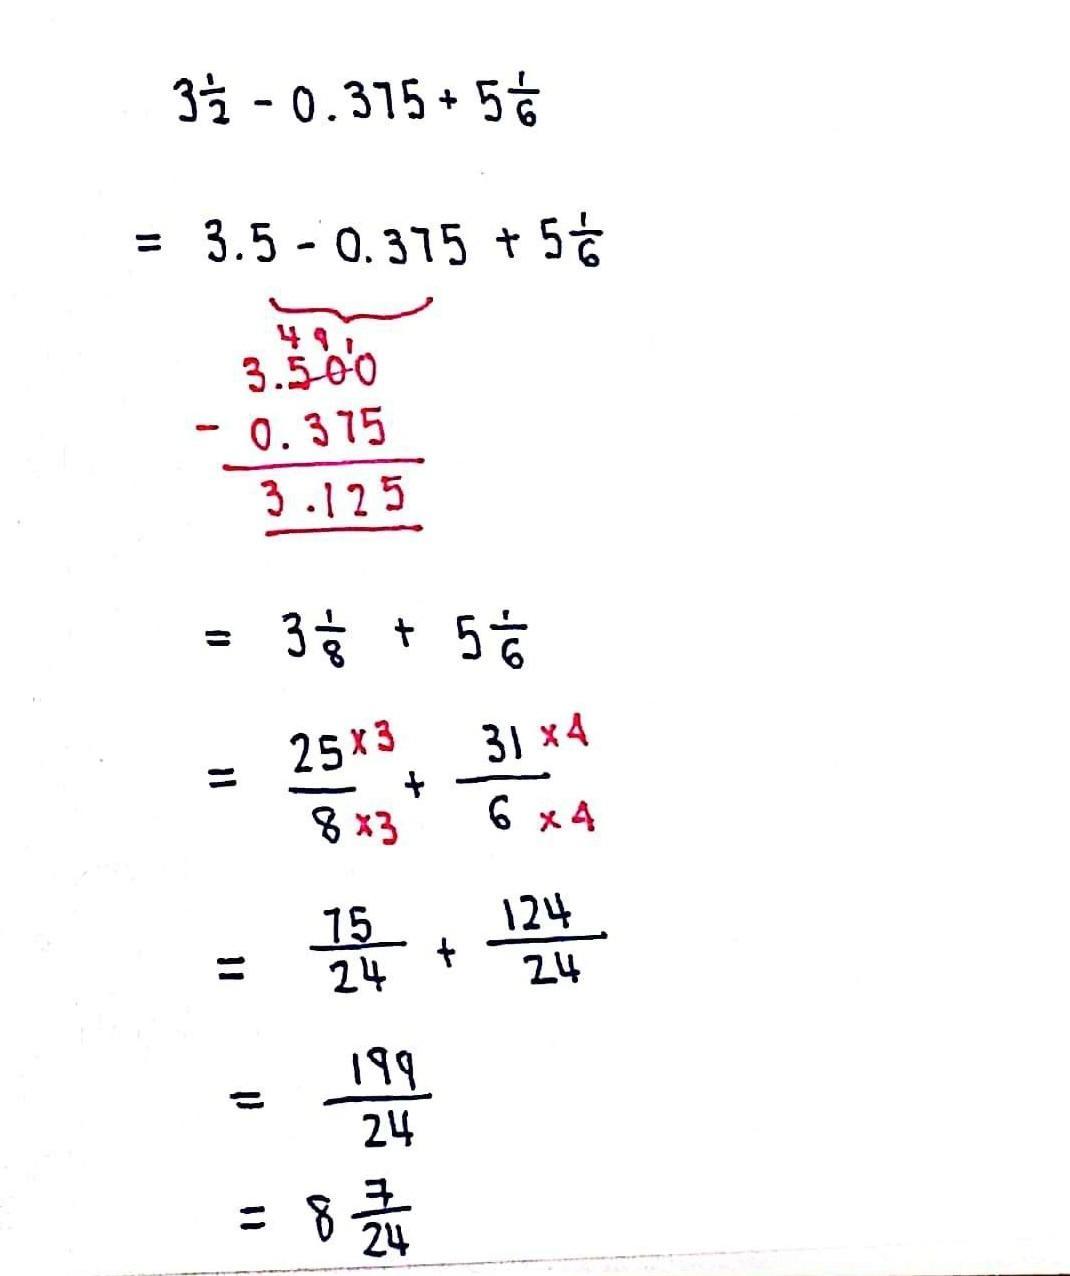 3 1/2 - 0.375 + 5 1/6
= 3.5 - 0.375 + 5 1/6
4 9 1
3.500
- 0.375
3.125
= 3 1/8 + 5 1/6
= 25×3/8×3 + 31×4/6×4
= 75/24 + 124/24
= 199/24
= 8 7/24